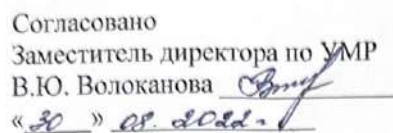 Согласовано
Заместитель директора по УМР
В.Ю. Волоканова
« 30 » 08. 2022 г